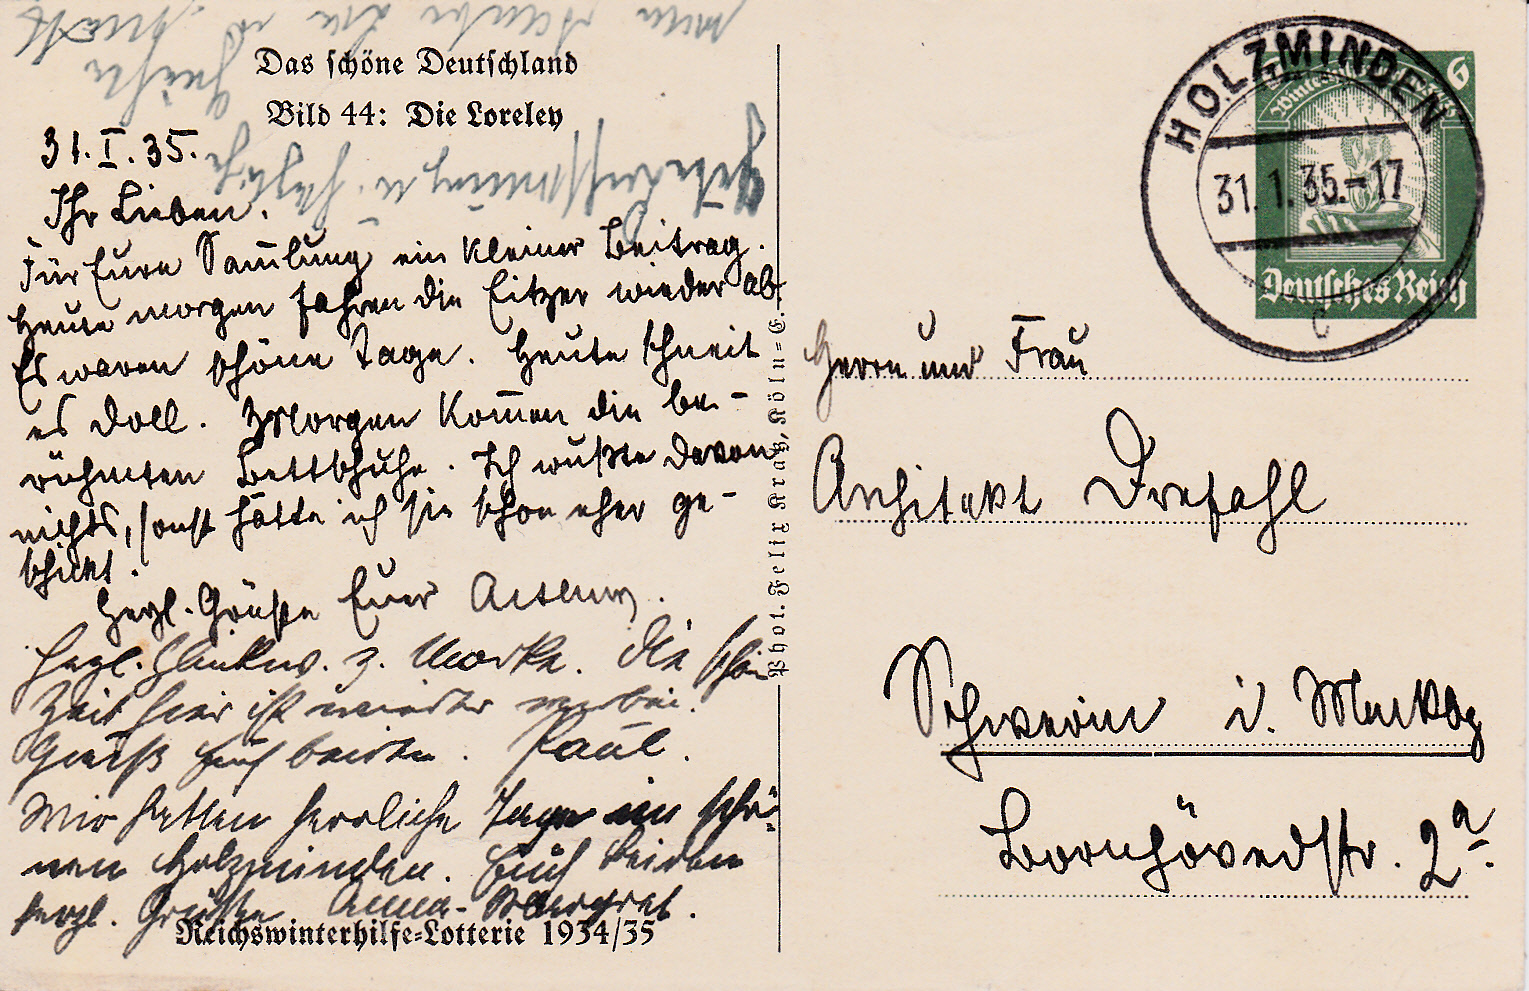 Das schöne Deutschland
Bild 44: Die Loreley
31. I. 35.
Ihr Lieben.
Für Eure Sam̅lung ein kleiner Beitrag.
Heute morgen fahren die Eitzer wieder ab.
Es waren schöne Tage. Heute schneit
es doll. Morgen kom̅en die be-
rühmten Bettschuhe. Ich wußte davon
nichts, sonst hätte ich sie schon eher ge-
schickt.
Herzl. Grüße Euer
Herzl. Glückw. z. Marke. Die schöne
Zeit hier ist wieder vorbei.
Gruß Euch beiden. Paul.
Wir hatten herrliche Tage im schö-
nen Holzminden. Euch beiden
herzl. Grüße Anna-Margret.
Reichswinterhilfe-Lotterie 1934/35
Phot. Felix Kratz, Köln-E.
HOLZMINDEN
31. 1. 35.-17
c
6
Deutsches Reich
Herrn und Frau
Architekt Drefahl
Schwerin i. Meckbg
Bornhövedstr. 2a.